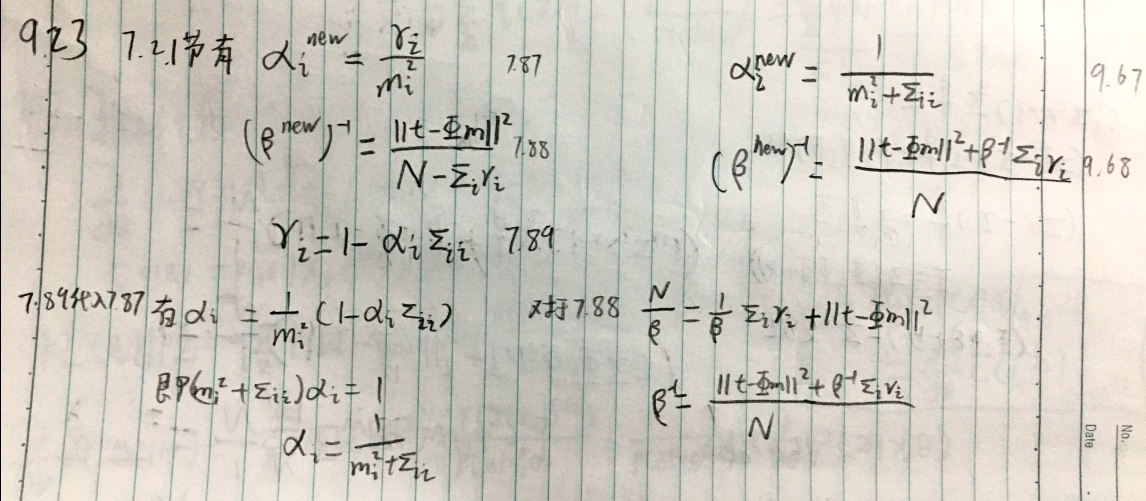 9.23 7.2.1节有 α_i^{new} = γ_i / m_i^2 7.87
(β^{new})^{-1} = ||t-Φm||^2 / (N-Σ_iγ_i) 7.88
γ_i = 1 - α_i Σ_{ii} 7.89
α_i^{new} = 1 / (m_i^2+Σ_{ii}) 9.67
(β^{new})^{-1} = (||t-Φm||^2+β^{-1}Σ_iγ_i) / N 9.68
7.89代入7.87 有 α_i = 1/m_i^2 (1-α_iΣ_{ii})
即(m_i^2+Σ_{ii})α_i = 1
α_i = 1 / (m_i^2+Σ_{ii})
对于7.88 N/β = 1/β Σ_iγ_i + ||t-Φm||^2
β^{-1} = (||t-Φm||^2+β^{-1}Σ_iγ_i) / N
No.
Date